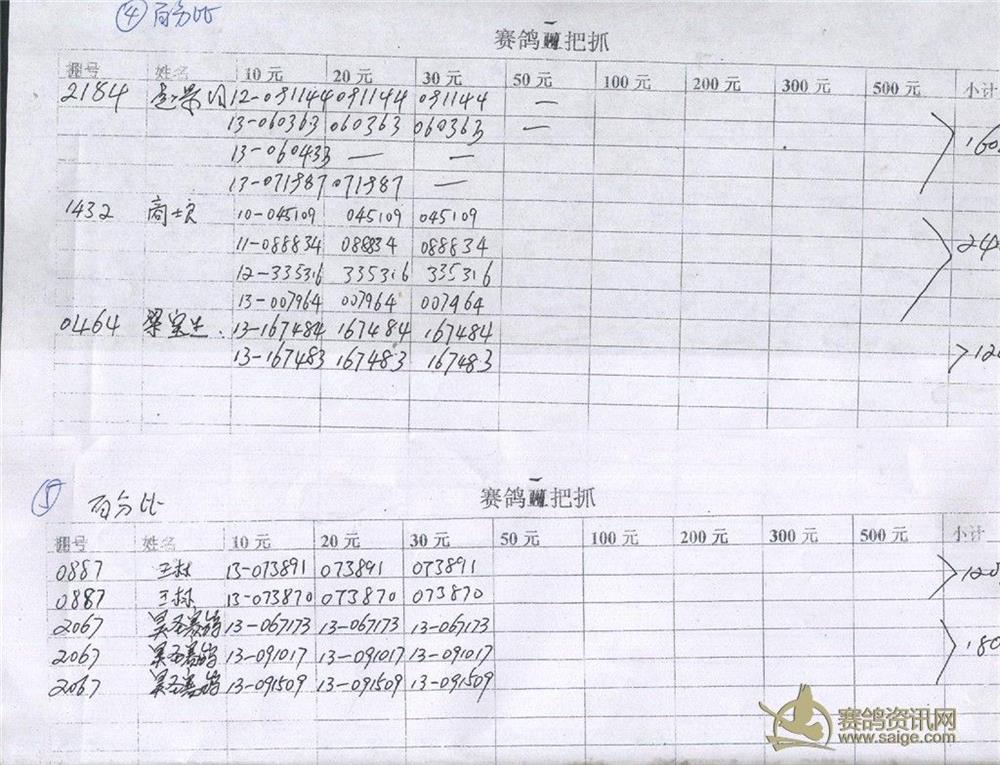 ④ 百分比
赛鸽 把抓
棚号 姓名 10元 20元 30元 50元 100元 200元 300元 500元 小计
2184 12-091144 091144 091144 —
13-060363 060363 060363 —
13-060433 — —
13-071987 071987 —
1432 10-045109 045109 045109
11-088834 088834 088834
12-335316 335316 335316
13-007964 007964 007464
0464 13-167484 167484 167484
13-167483 167483 167483
⑤ 百分比
赛鸽 把抓
棚号 姓名 10元 20元 30元 50元 100元 200元 300元 500元 小计
0887 13-073891 073891 073891
0887 13-073870 073870 073870
2067 13-067173 13-067173 13-067173
2067 13-091017 13-091017 13-091017
2067 13-091509 13-091509 13-091509
赛鸽资讯网
www.saige.com